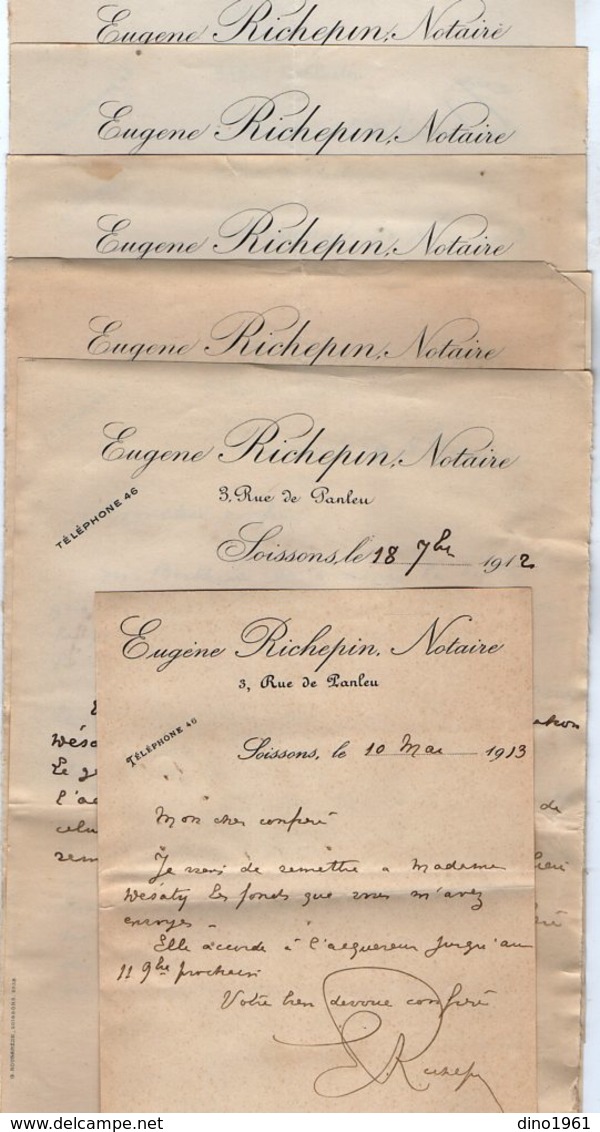 Eugène Richepin, Notaire
Eugène Richepin, Notaire
Eugène Richepin, Notaire
Eugène Richepin, Notaire
Eugène Richepin, Notaire
3, Rue de Panleu
TÉLÉPHONE 46
Soissons, le 18 7bre 1912
Wésaty
Le
l'ac
de
celu
rem
Eugène Richepin, Notaire
3, Rue de Panleu
TÉLÉPHONE 46
Soissons, le 10 Mai 1913
Mon cher confrère
Je viens de remettre a Madame
Wésaty les fonds que vous m'avez
envoyes.
Elle accorde à l'acquereur jusqu'au
11 9bre prochain
Votre bien devoué confrère
E. Richepin
dino1961